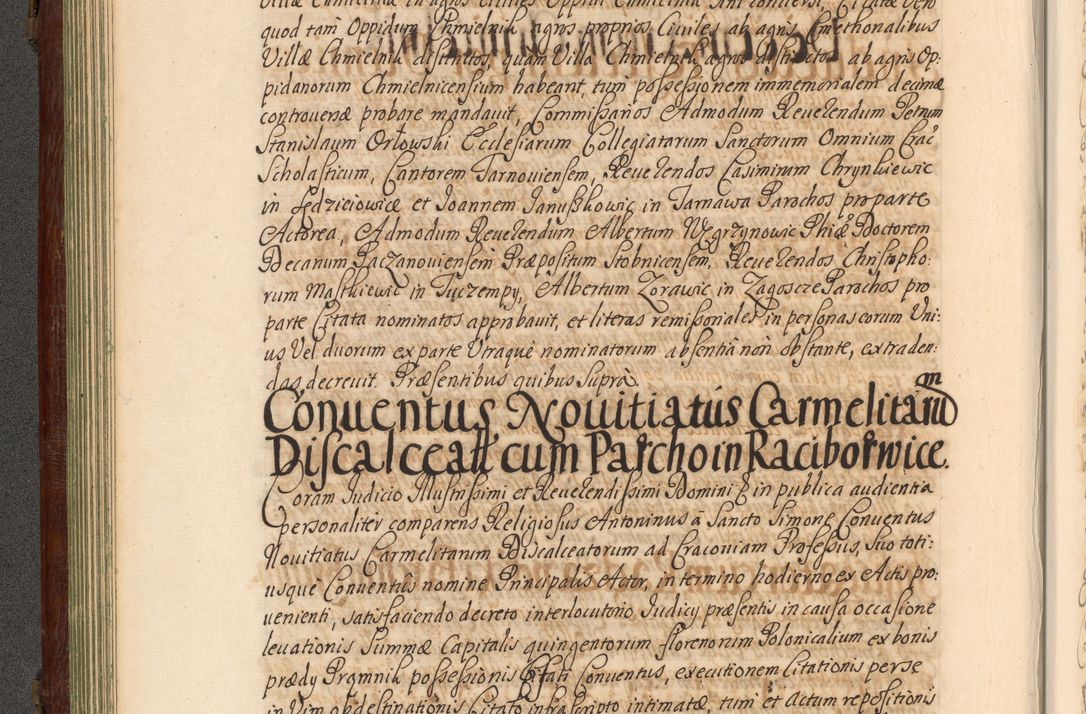 quod tam Oppidum Chmielnik agros proprios Civiles ab agris Cmethonalibus
Villæ Chmielnik distinctos, quam Villa Chmielnik agros distinctos ab agris Op:
pidanorum Chmielnicensium habeant, tum possessionem immemorialem decimæ
controversæ probare mandavit, Commissarios Admodum Reverendum Petrum
Stanislaum Orłowski Ecclesiarum Collegiatarum Sanctorum Omnium Crac
Scholasticum, Cantorem Tarnoviensem, Reverendos Casimirum Chrynkiewic
in Sędzieiowice et Ioannem Ianußkowic in Tarnawa Parochos pro parte
Actorea, Admodum Reverendum Albertum Węgrzynowic Phiæ Doctorem
Decanum Paczanoviensem Præpositum Stobnicensem, Reverendos Christopho:
rum Maskiewic in Tuczempy, Albertum Zorawic in Zagoscze Parochos pro
parte Citata nominatos approbavit, et literas remissoriales in personas eorum Uni:
us Vel duorum ex parte Utraque nominatorum absentia non obstante, extraden:
das decrevit. Præsentibus quibus Supra.
Conventus Novitiatus Carmelitarum
Discalceatt cum Parcho in Raciborwice.
Coram Iudicio Illustrissimi et Reverendissimi Domini & in publica audientia
personaliter comparens Religiosus Antoninus a Sancto Simone Conventus
Novitiatus Carmelitarum Discalceatorum ad Cracoviam Professus, Suo toti:
usque Conventus nomine Principalis Actor, in termino hodierno ex Actis pro:
venienti, satisfaciendo decreto interlocutorio Iudicy præsentis in causa occasione
levationis Summæ Capitalis quingentorum florenorum Polonicalium ex bonis
prædy Pramnik possessionis Citati Conventus, executionem Citationis per se
in Vim ob destinationis Citato infrascripto intimatæ, tum et Actum repositionis